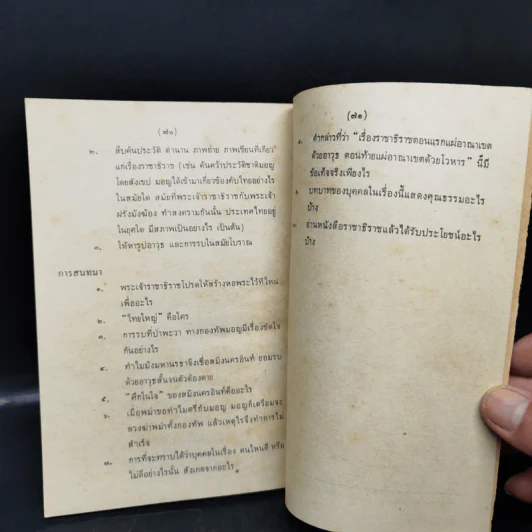 (๗๐)
๒. สืบค้นประวัติ ตำนาน ภาพถ่าย ภาพเขียนที่เกี่ยว
แก่เรื่องราชาธิราช (เช่น ค้นคว้าประวัติชาติมอญ
โดยสังเขป มอญได้เข้ามาเกี่ยวข้องกับไทยอย่างไร
ในสมัยใด สมัยที่พระเจ้าราชาธิราชกับพระเจ้า
ฝรั่งมังฆ้อง ทำสงครามกันนั้น ประเทศไทยอยู่
ในยุคใด มีสภาพเป็นอย่างไร เป็นต้น)
๓. ให้หารูปอาวุธ และการรบในสมัยโบราณ
การสนทนา
๑. พระเจ้าราชาธิราชโปรดให้สร้างหอพระไว้ที่ไหน
เพื่ออะไร
๒. "ไทยใหญ่" คือใคร
๓. การรบที่ปาพะวา ทางกองทัพมอญมีเรื่องขัดใจ
กันอย่างไร
๔. ทำไมมังมหานรธาจึงเชื่อสมิงนครอินท์ ยอมรบ
ด้วยอาวุธสั้นจนตัวต้องตาย
๕. "ศึกในใจ" ของสมิงนครอินท์คืออะไร
๖. เมื่อพม่าขอทำไมตรีกับมอญ มอญก็เตรียมจะ
ลวงฆ่าพม่าทั้งกองทัพ แล้วเหตุไรจึงทำการไม่
สำเร็จ
๗. การที่จะทราบได้ว่าบุคคลในเรื่อง คนไหนดี หรือ
ไม่ดีอย่างไรนั้น สังเกตจากอะไร
(๗๑)
คำกล่าวที่ว่า "เรื่องราชาธิราชตอนแรกแผ่อาณาเขต
ด้วยอาวุธ ตอนท้ายแผ่อาณาเขตด้วยโวหาร" นี้มี
ข้อเท็จจริงเพียงไร
บทบาทของบุคคลในเรื่องนี้แสดงคุณธรรมอะไร
บ้าง
อ่านหนังสือราชาธิราชแล้วได้รับประโยชน์อะไร
บ้าง